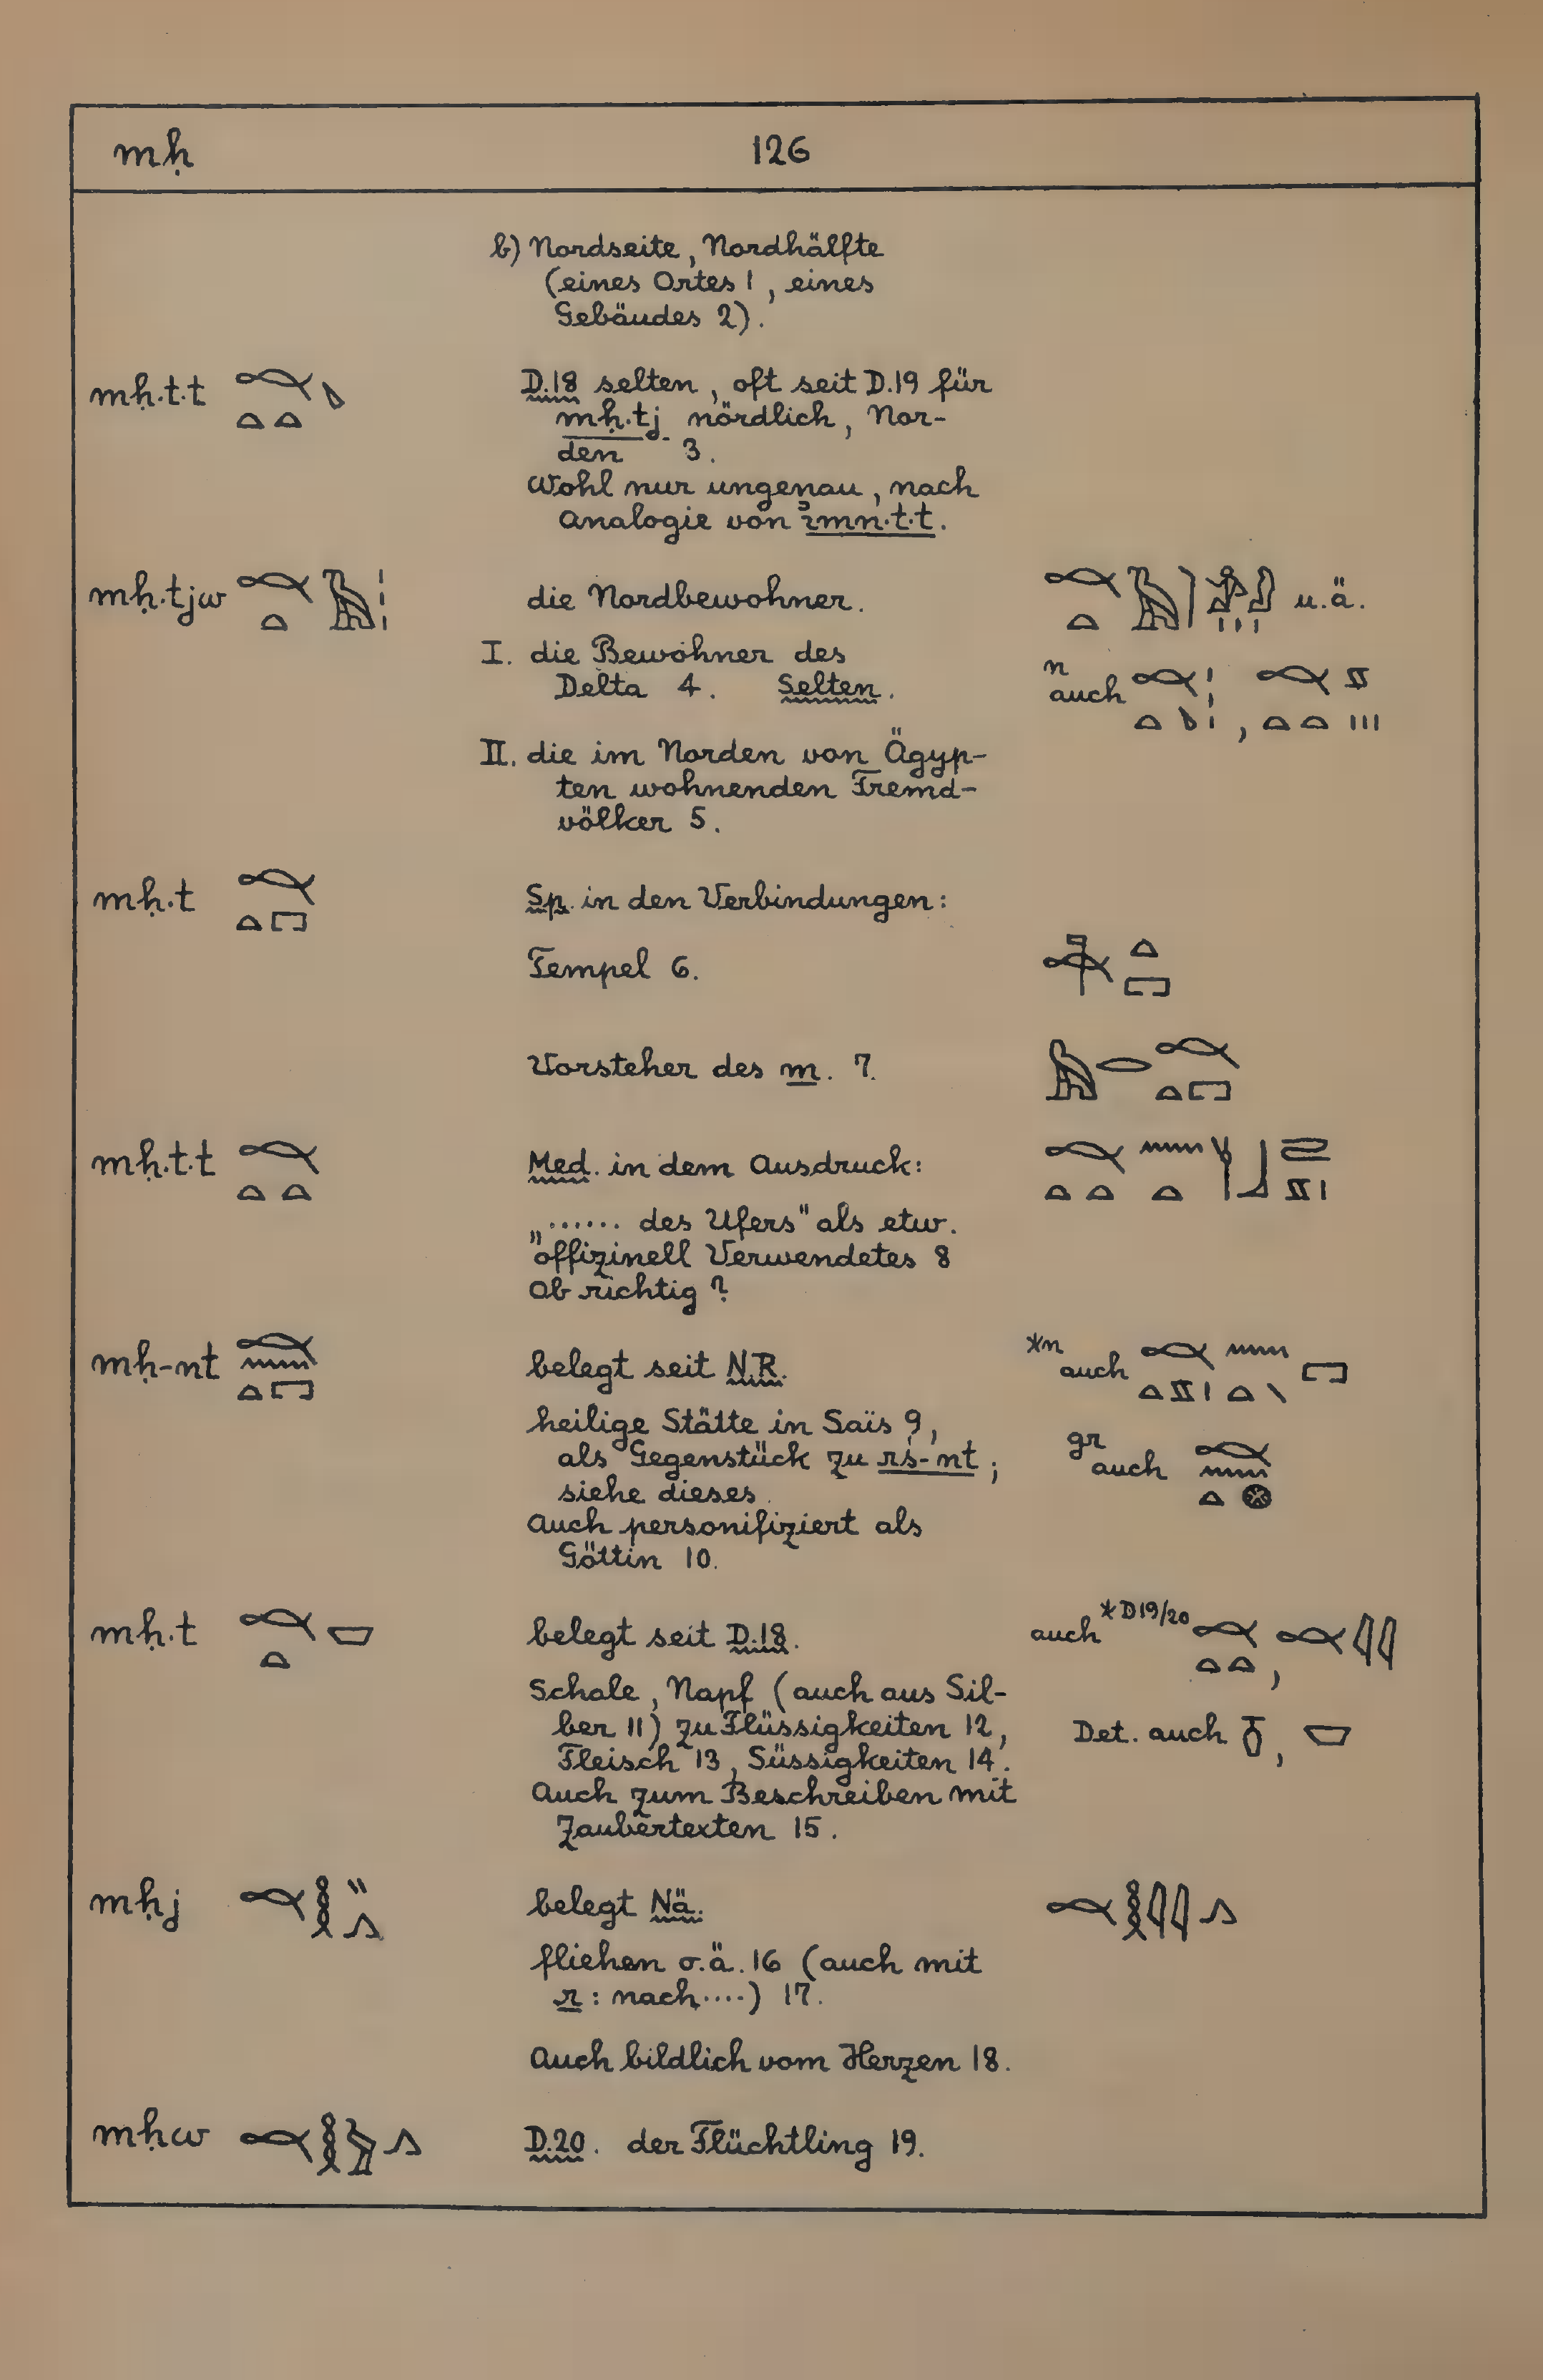 mḥ 126
b) Nordseite, Nordhälfte
(eines Ortes 1, eines
Gebäudes 2).
mḥ.t.t D.18 selten, oft seit D.19 für
mḥ.tj nördlich, Nor-
den 3.
Wohl nur ungenau, nach
Analogie von ỉmn.t.t.
mḥ.tjw die Nordbewohner. u.ä.
I. die Bewohner des
Delta 4. Selten. n auch
II. die im Norden von Ägyp-
ten wohnenden Fremd-
völker 5.
mḥ.t Sp. in den Verbindungen:
Tempel 6.
Vorsteher des m. 7.
mḥ.t.t Med. in dem Ausdruck:
„...... des Ufers" als etw.
offizinell Verwendetes 8
Ob richtig?
mḥ-nt belegt seit N.R. *n auch
heilige Stätte in Saïs 9,
als Gegenstück zu rś-nt; gr auch
siehe dieses.
Auch personifiziert als
Göttin 10.
mḥ.t belegt seit D.18. auch *D19/20
Schale, Napf (auch aus Sil-
ber 11) zu Flüssigkeiten 12, Det. auch
Fleisch 13, Süssigkeiten 14.
Auch zum Beschreiben mit
Zaubertexten 15.
mḥj belegt Nä.
fliehen o.ä. 16 (auch mit
r: nach....) 17.
Auch bildlich vom Herzen 18.
mḥw D.20. der Flüchtling 19.